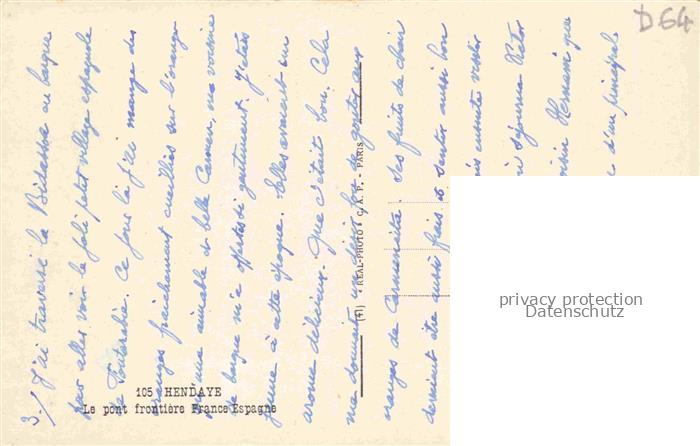 3-/ J'ai traversé la Bidassoa en barque
pour aller voir le joli petit village espagnole
de Fontarabie. Ce jour là j'ai mangé des
oranges fraichement cueillies sur l'oranger
par une aimable et belle Carmen, ma voisine
de barque m'a offertes si gentiment. J'étais
jeune à cette époque. Elles avaient un
arome délicieux. Que c'était bon. Cela
me donnait un désir fou de goûter aux
oranges de Carmencita. Ses fruits de chair
devaient être aussi frais et sentir aussi bon
ensuite visiter
séjourna Victor
Hernani que
d'un principal
D64
105 HENDAYE
Le pont frontière France Espagne
(41) - REAL-PHOTO - C. A. P. - PARIS
privacy protection
Datenschutz